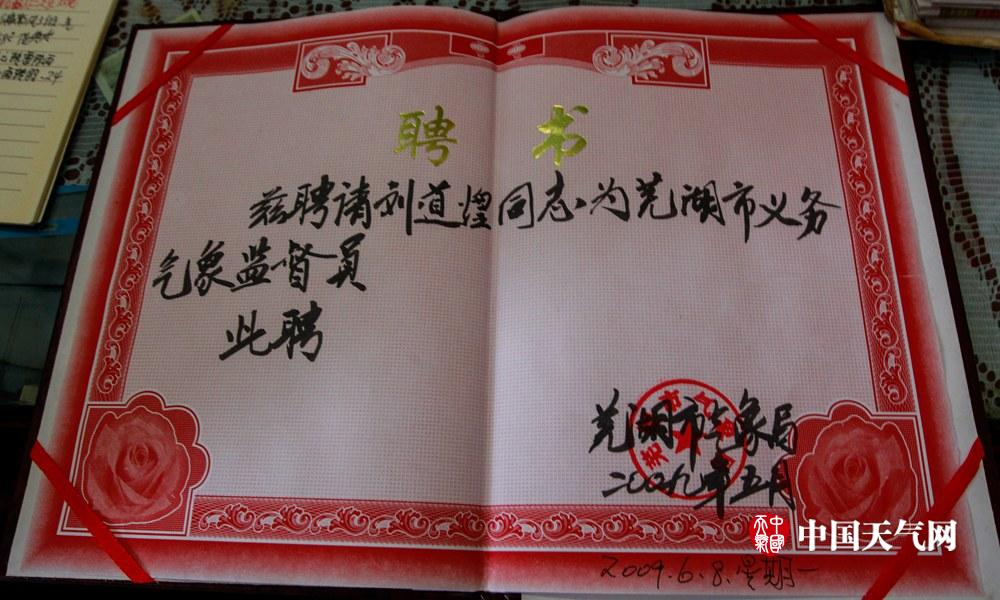 聘 书
兹聘请刘道煌同志为芜湖市义务
气象监督员
此聘
芜湖市气象局
二00九年五月
2009.6.8.星期一
中国天气
中国天气网